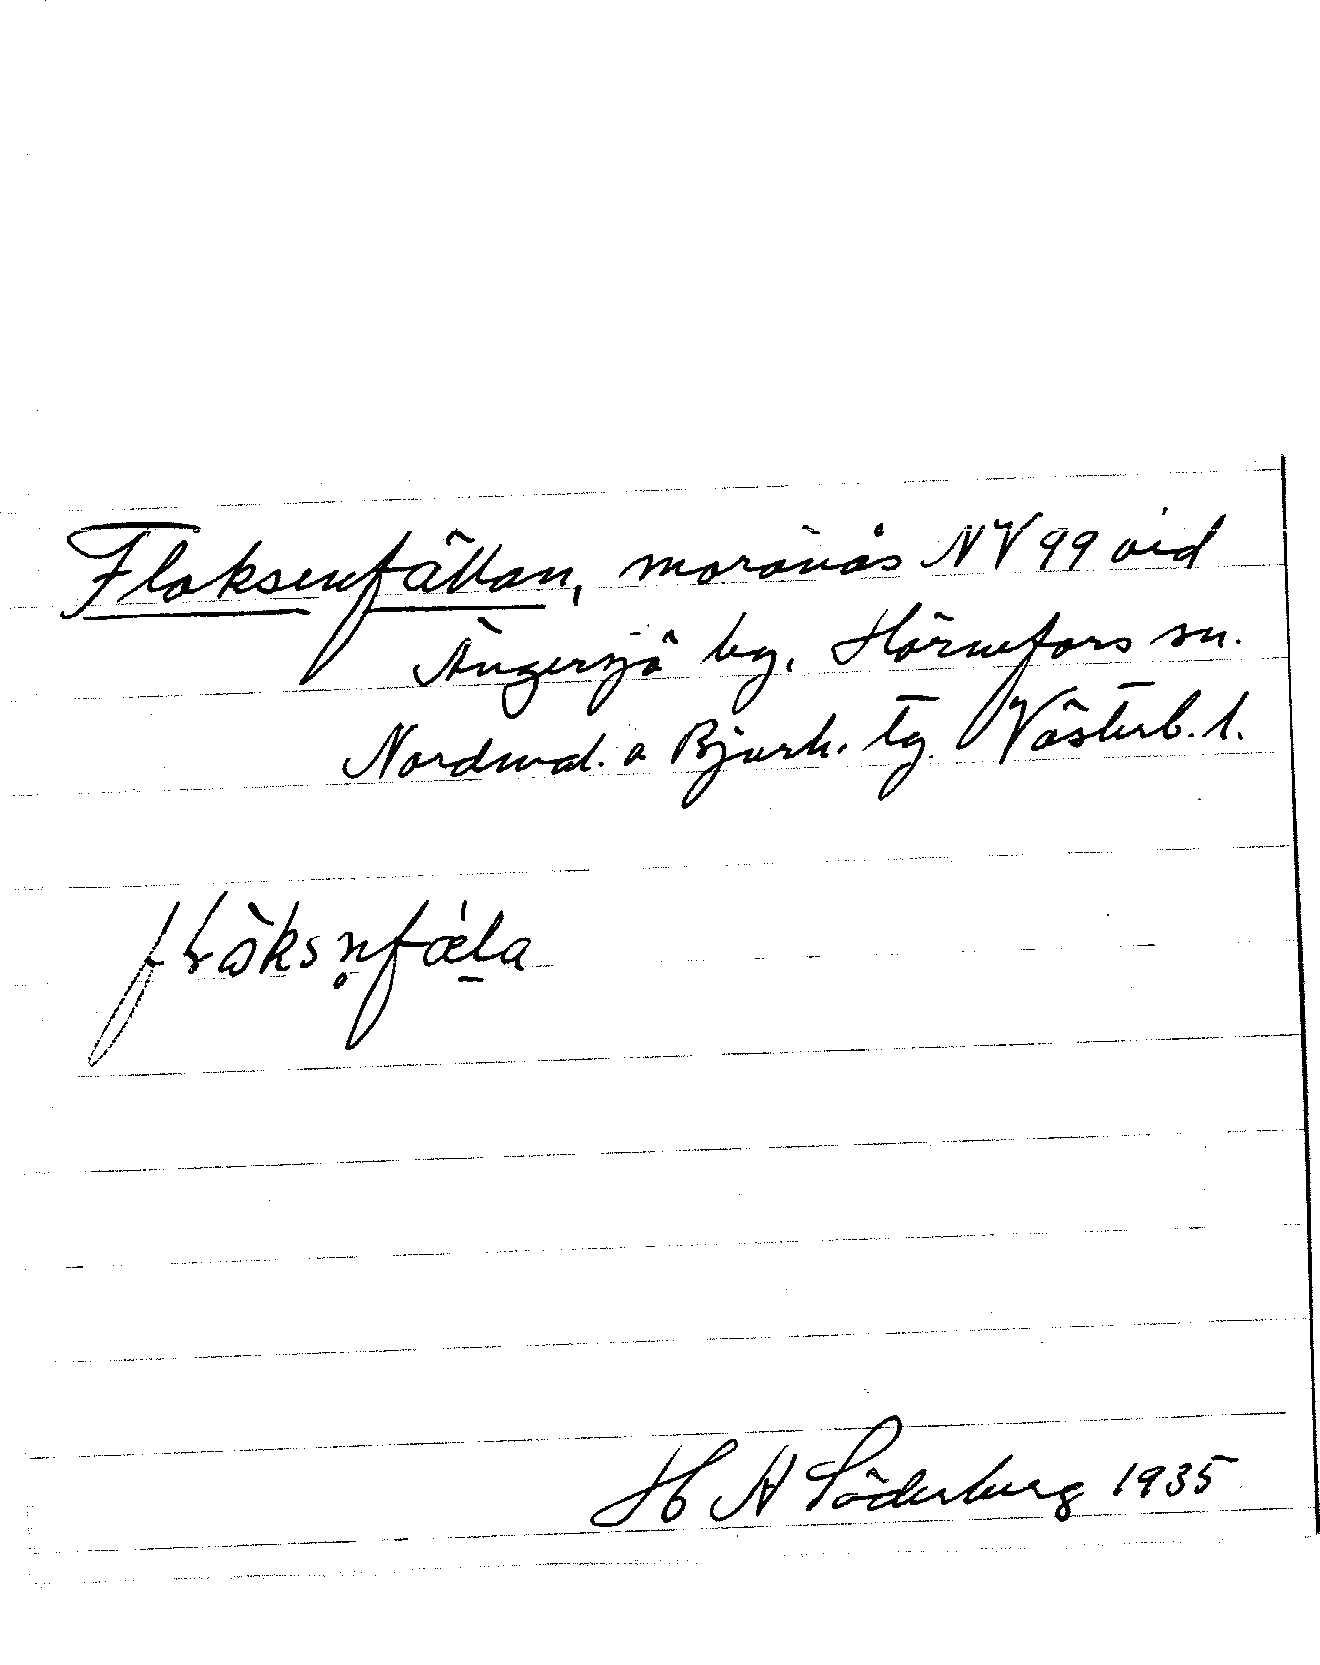 Flaksenfällan, moränås NV 99 vid
Ängersjö by, Hörnefors sn.
Nordmal. o Bjurh. tg. Västerb. l.
flàksn̥fǽla
H A Söderberg 1935